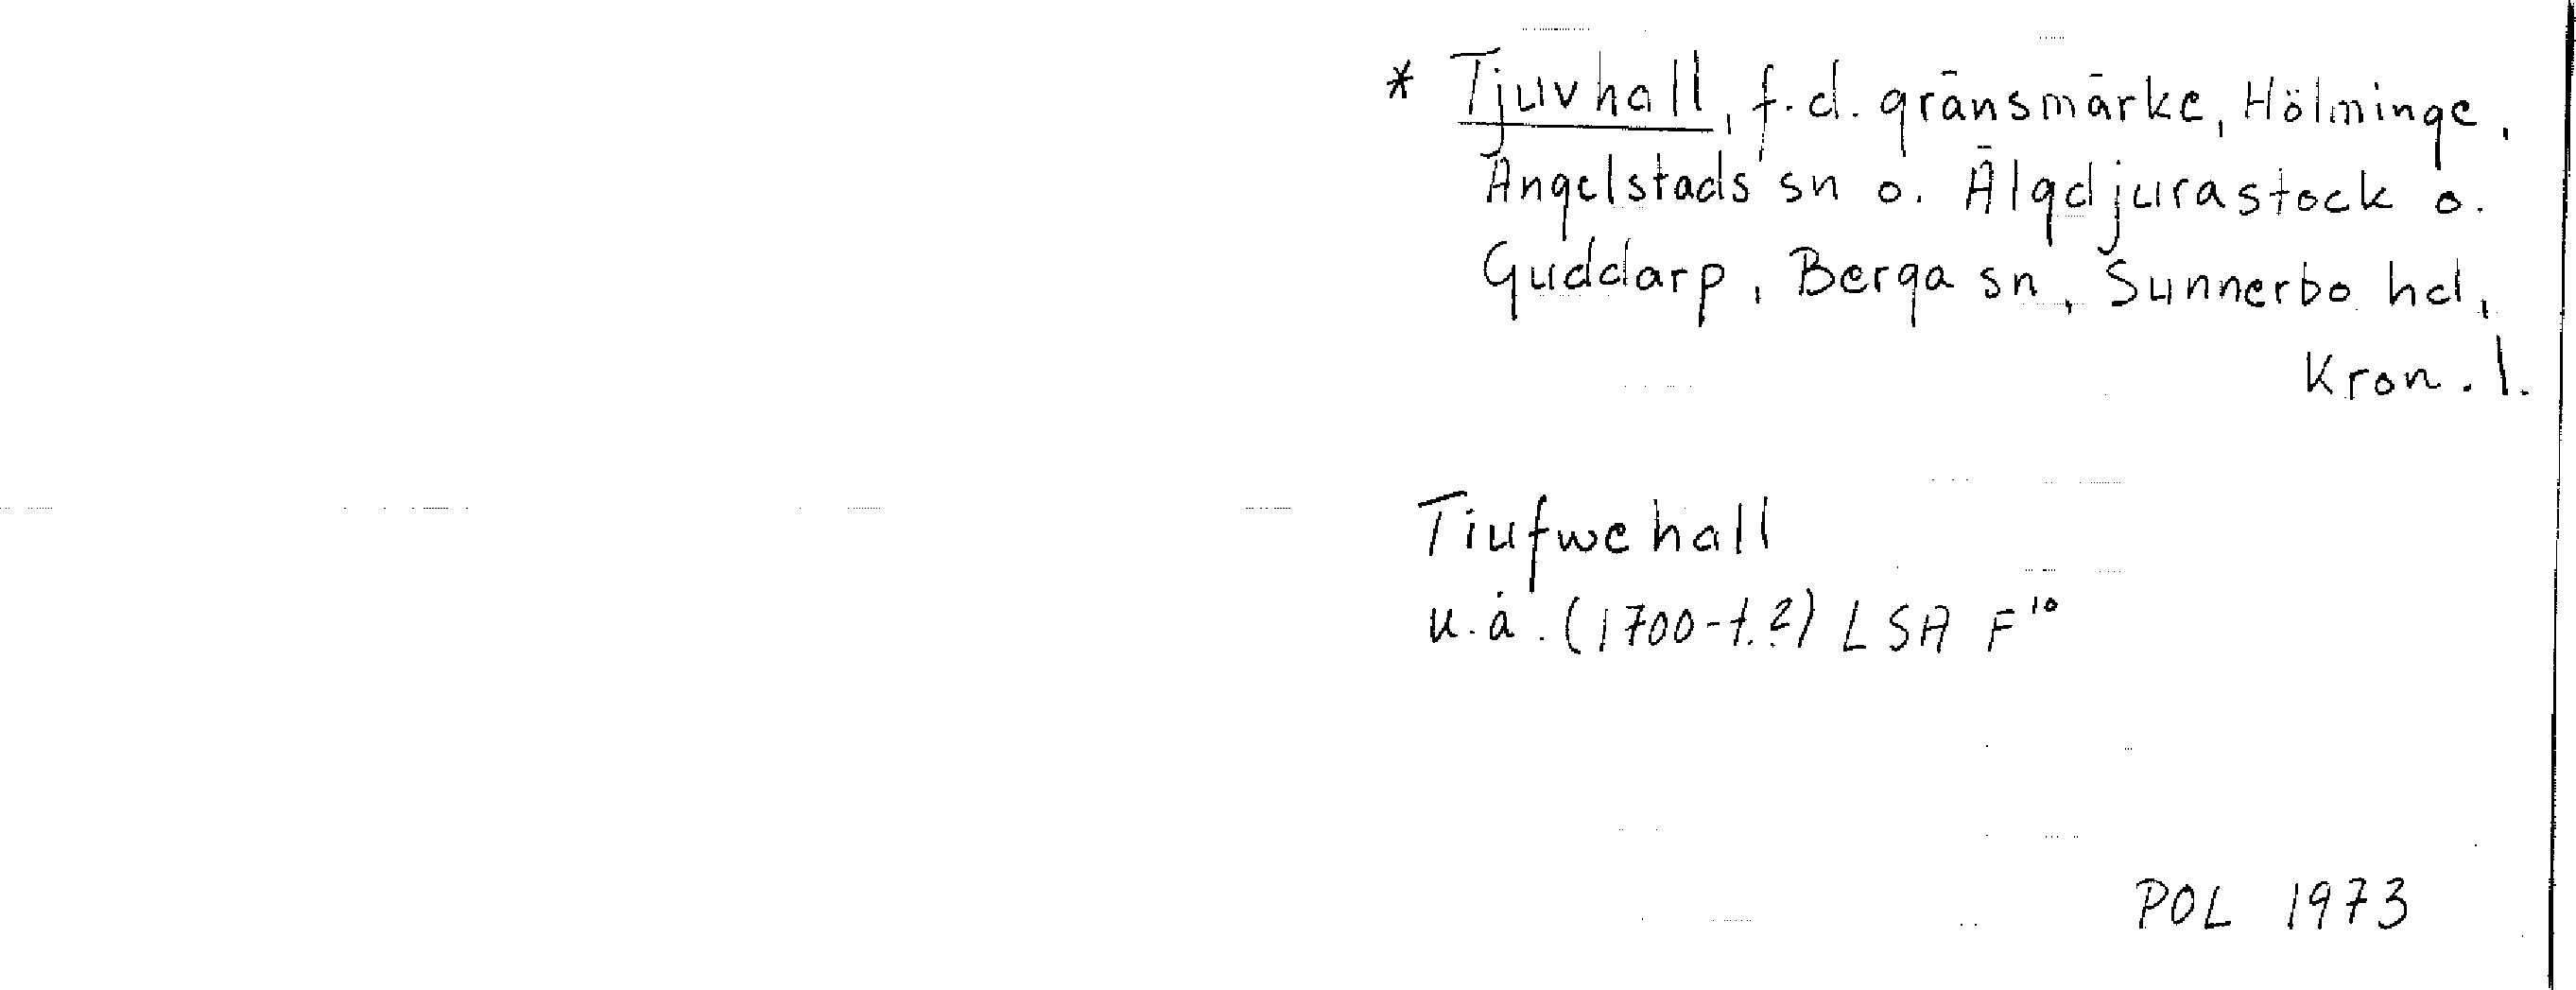 * Tjuvhall, f.d. gränsmärke, Hölminge,
Angelstads sn o. Älgdjurastock o.
Guddarp, Berga sn, Sunnerbo hd,
Kron. l.
Tiufwehall
u.å. (1700-t.?) LSA F¹⁰
POL 1973